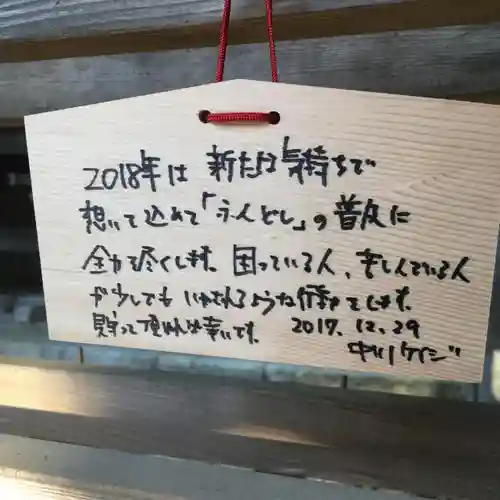 2018年は 新たな気持ちで
想いを込めて「ふんどし」の普及に
全力を尽くします。困っている人、苦しんでいる人
が少しでもいやされるような行動をします。
見守って頂ければ幸いです。 2017.12.29
中川ケイジ